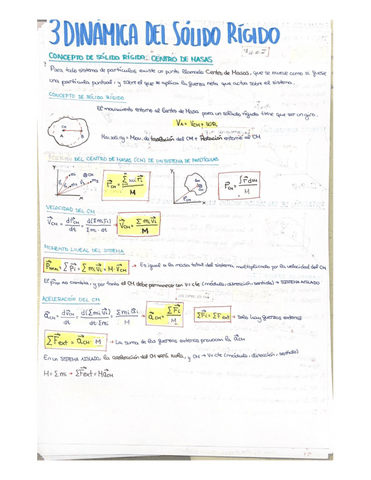 3 DINÁMICA DEL SÓLIDO RÍGIDO
CONCEPTO DE SÓLIDO RÍGIDO. CENTRO DE MASAS
Para todo sistema de partículas existe un punto llamado Centro de Masas, que se mueve como si fuese
una partícula puntual, y sobre el que se aplica la fuerza neta que actúa sobre el sistema.
CONCEPTO DE SÓLIDO RÍGIDO
El movimiento entorno al Centro de Masa para un sólido rígido tiene que ser un giro.
VA = VCM + WR
Mov. de Traslación del CM + Rotación entorno al CM
POSICIÓN DEL CENTRO DE MASAS (CM) DE UN SISTEMA DE PARTÍCULAS
r⃗CM = Σ mi r⃗i / M
r⃗CM = ∫ r⃗ dm / M
VELOCIDAD DEL CM
V⃗CM = dr⃗CM / dt = d(Σ mi r⃗i) / Σ mi · dt → V⃗CM = Σ mi v⃗i / M
MOMENTO LINEAL DEL SISTEMA
= Σ p⃗i = Σ mi v⃗i = M · V⃗CM → Es igual a la masa total del sistema multiplicado por la velocidad del CM
no cambia, y por tanto el CM debe permanecer con V = cte (módulo, dirección, sentido) → SISTEMA AISLADO
ACELERACIÓN DEL CM
a⃗CM = dv⃗CM / dt = d(Σ mi v⃗i) / dt · Σ mi = Σ mi a⃗i / M → a⃗CM = Σ F⃗i / M
Σ F⃗i = Σ F⃗ext → Solo hay fuerzas externas
Σ F⃗ext = a⃗CM · M → La suma de las fuerzas externas provocan la a⃗CM
En un SISTEMA AISLADO la aceleración del CM será nula, y CM → V = cte (módulo, dirección, sentido)
M = Σ mi → Σ F⃗ext = M a⃗CM